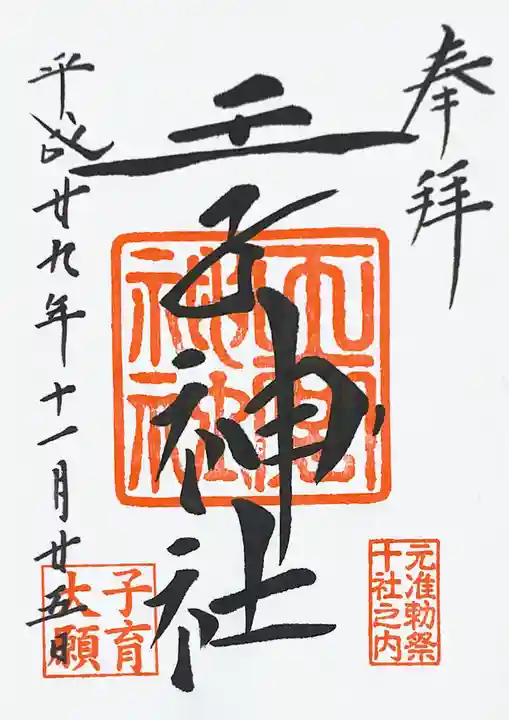 奉拝
王子神社
平成廿九年十一月廿五日
元准勅祭
十社之内
子育
大願